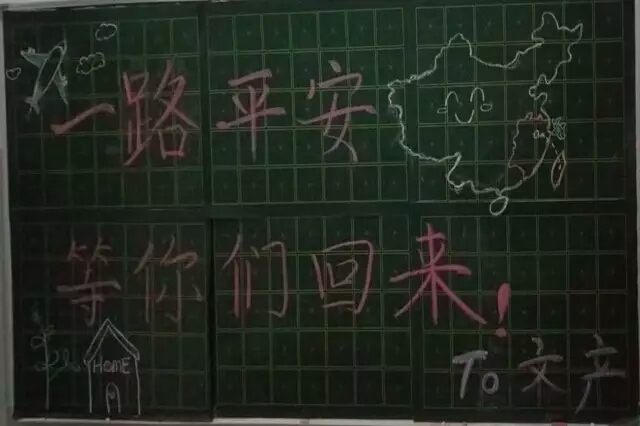 一路平安
等你们回来!
HOME
To 文产